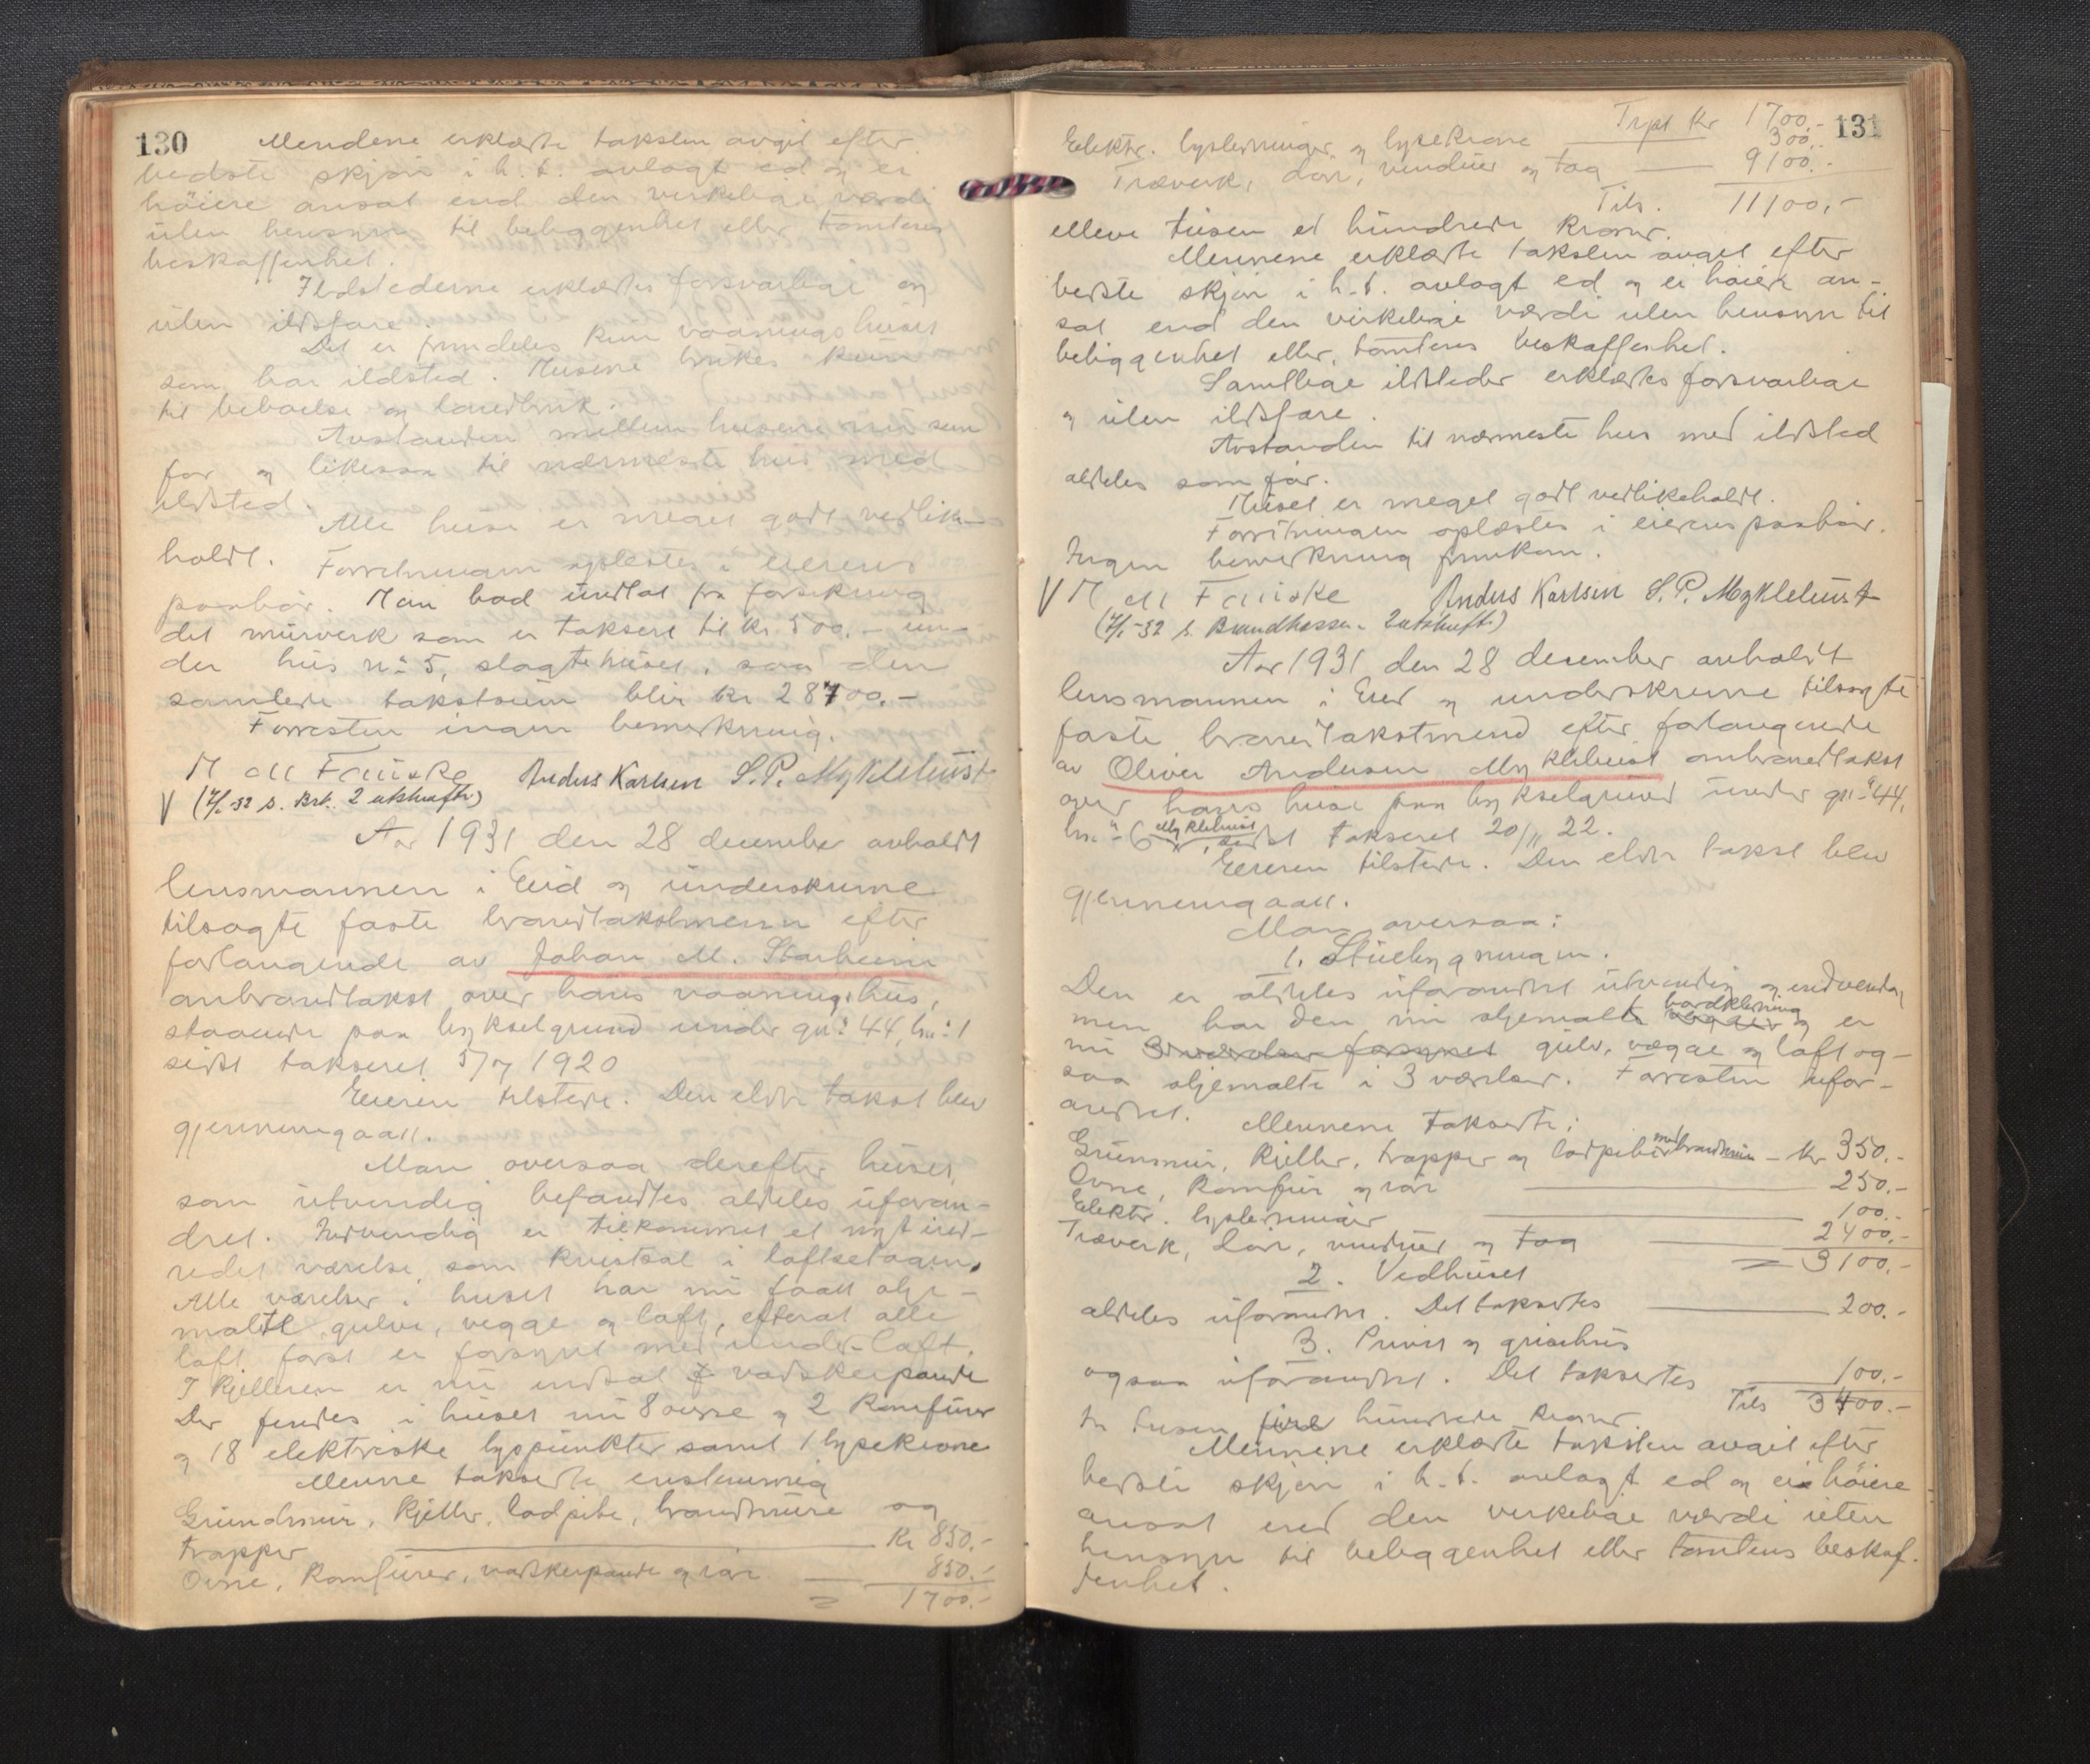 130
Mendene erklærte taksten avgit efter
bedste skjøn i h.t. avlagt ed og ei
høiere ansat end den virkelige værdi
uten hensyn til beliggenhet eller tomtens
beskaffenhet.
Ildstederne erklærtes forsvarlige og
uten ildsfare.
Det er fremdeles kun vaaningshuset
som har ildsted. Husene brukes kun
til beboelse og landbruk.
Avstanden mellem husene nu som
før og likesaa til nærmeste hus med
ildsted.
Alle huse er meget godt vedlike-
holdt. Forretningen oplæstes i eierens
paahør. Han bad undtat fra forsikring
det murverk som er taksert til kr 500.- un-
der hus no 5, slagtehuset, saa den
samlede takstsum blir kr 28700.-
Forresten ingen bemerkning.
M all Fauske Anders Karlsen S. P. Myklebust
V (7/1-32 s. Brk. 2 utskrifter)
Aar 1931 den 28 december avholdt
lensmannen i Eid og underskrevne
tilsagte faste brandtakstmenn efter
forlangende av Johan M. Starheim
ombrandtakst over hans vaaningshus,
staaende paa bykselgrund under gno 44, bno 1
sidst taksert 5/7 1920
Eieren tilstede. Den eldre takst blev
gjennemgaatt.
Man oversaa derefter huset,
som utvendig befandtes aldeles uforan-
dret. Indvendig er tilkommet et nyt ind-
redet værelse som kvistsal i loftsetagen.
Alle værelser i huset har nu faatt olje-
malte gulve, vegge og loft, efterat alle
loft først er forsynet med under-loft.
I kjelleren er nu indsat vaskerpande
Der findes i huset nu 8 ovne og 2 komfurer
og 18 elektriske lyspunkter samt 1 lysekrone
Menne takserte enstemmig
Grundmur, kjeller, lodpibe, brandmure og
trapper Kr 850.-
Ovne, komfurer, vaskerpande og rør 850.-
= 1700.-
131
Trpt kr 1700.-
Elektr. lysledninger og lysekrone 300.-
Træverk, dør, vinduer og tag 9100.-
Tils. 11100.-
elleve tusen et hundrede kroner.
Mennene erklærte taksten avget efter
bedste skjøn i h.t. avlagt ed og ei høiere an-
sat end den virkelige værdi uten hensyn til
beliggenhet eller tomtens beskaffenhet.
Samtlige ildsteder erklærtes forsvarlige
og uten ildsfare.
Avstanden til nærmeste hus med ildsted
aldeles som før.
Huset er meget godt vedlikeholdt.
Forretningen oplæstes i eierens paahør.
Ingen bemerkning fremkom.
V M all Fauske Anders Karlsen S. P. Myklebust
(7/1-32 s. Brandkassen. 2 utskrift.)
Aar 1931 den 28 desember avholdt
lensmannen i Eid og underskrevne tilsagte
faste brandtakstmend efter forlangende
av Oliver Andersen Myklebust ombrandtakst
over hans huse paa bykselgrund under gno 44,
bno 6 Myklebust, sidst taksert 20/11 22.
Eieren tilstede. Den eldre takst blev
gjennemgaatt.
Man oversaa:
1. Stuebygningen.
Den er aldeles uforandret utvendig og indvendig
men har den nu oljemalt bordklædning og er
nu 3 værelser forsynet gulv, vægge og loft og-
saa oljemalte i 3 værelser. Forresten ufor-
andret. Mennene takserte:
Grunnmur, kjeller, trapper og lodpiber med brandmur - kr 350.-
Ovne, komfur og rør 250.-
Elektr. lysledninger 100.-
Træverk, dør, vinduer og tag 2400.-
= 3100.-
2. Vedhuset
aldeles uforandret. Det takseres 200.-
3. Privet og grisehus
ogsaa uforandret. Det taksertes 100.-
Tils 3400.-
tre tusen fire hundrede kroner.
Mennene erklærte taksten avgit efter
bedste skjøn i h.t. avlagt ed og ei høiere
ansat end den virkelige værdi uten
hensyn til beliggenhet eller tomtens beskaf-
fenhet.